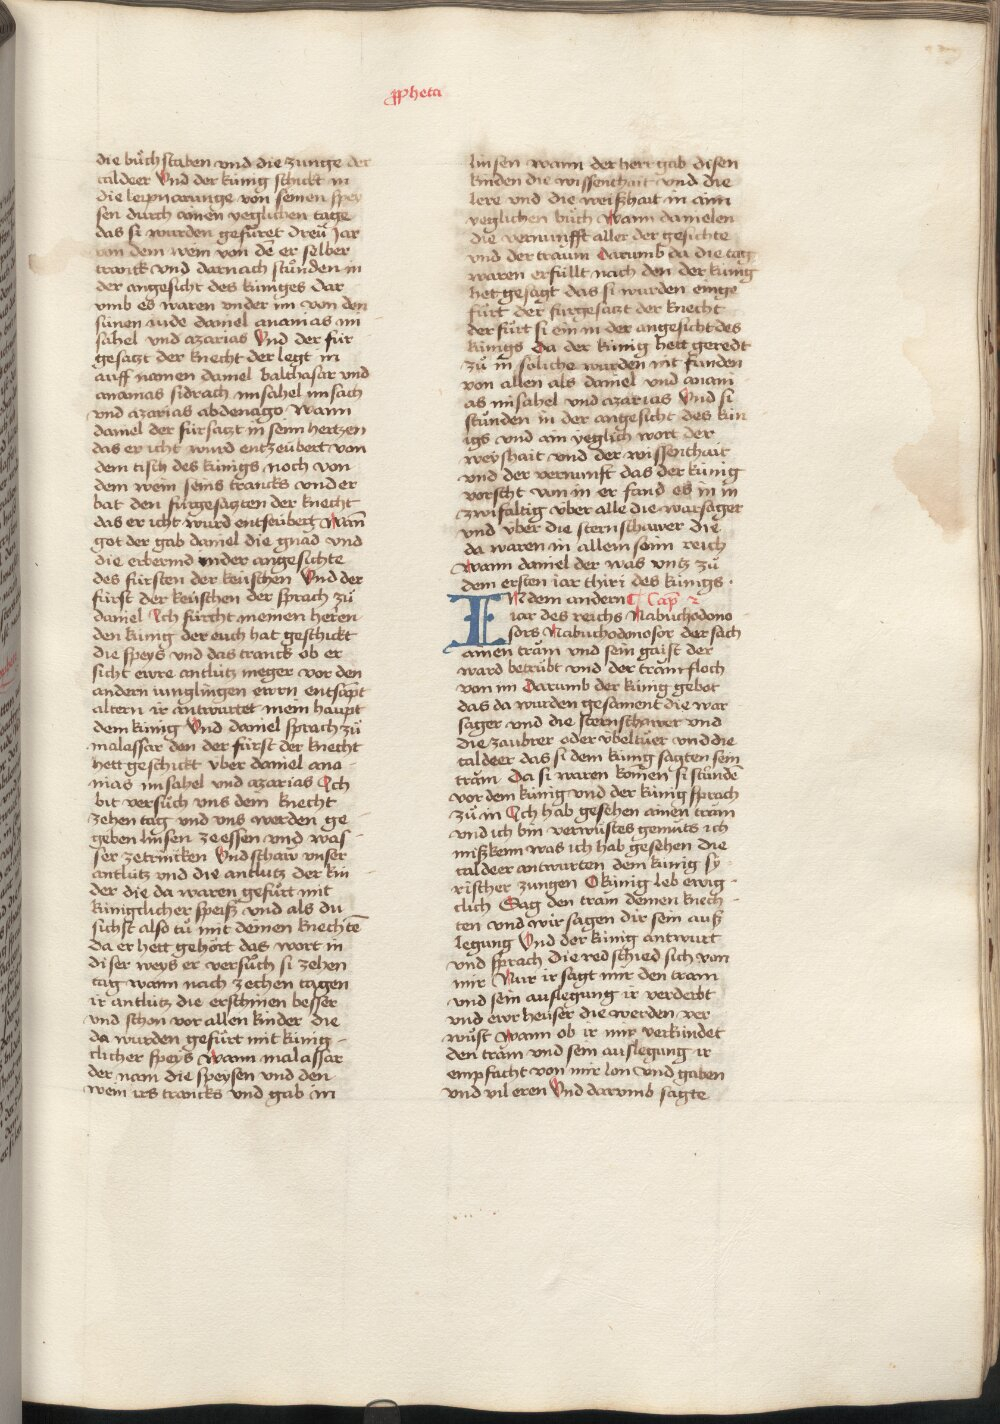 ꝓpheta
die bůchstaben vnd die zunge der
caldeer Vnd der kúnig schickt in
die leipnarunge von seinen spey
sen durch ainen yeglichen tage
das si wurden gefúret dreú Jar
von dem wein von dē er selber
tranck vnd darnach stůnden in
der angesicht des kúniges Dar
vmb es waren vnder im von den
súnen iude daniel ananias mi
sahel vnd azarias Vnd der fúr
gesatzt der knecht der legt in
auff namen daniel balthasar vnd
ananias sidrach misahel misach
vnd azarias abdenago Wann
daniel der fúrsatzt in seim hertzen
das er icht wurd entzeúbert von
dem tisch des kúnigs noch von
dem wein seins trancks vnd er
bat den fúrgesatzten der knecht
das er icht wurd entseúbert Wañ
got der gab daniel die gnad vnd
die erbermd in der angesichte
des fúrsten der keúschen Vnd der
fúrst der keúschen der sprach zů
daniel Ich fúrcht meinen herren
den kúnig der euch hat geschickt
die speys vnd das tranck ob er
sicht ewre antlútz meger vor den
andern iunglingen ewrn entsapt
altern ir antwúrtet mein haupt
dem kúnig Vnd daniel sprach zů
malassar den der fúrst der knecht
hett geschickt vber daniel ana
nias misahel vnd azarias Ich
bit versůch vns dein knecht
zehen tag vnd vns werden ge
geben linsen ze essen vnd was
ser ze trincken Vnd schaw vnser
antlútz vnd die antlútz der kin
der die da waren gefúrt mit
kúnigtlicher speiß vnd als du
sichst also tů mit deinen knechtē
da er hett gehört das wort in
diser weys er versůch si zehen
tag wann nach zechen tagen
ir antlútz die erschinen besser
vnd schon vor allen kinder die
da wurden gefúrt mit kúnig
tlicher speys Wann malassar
der nam die speysen vnd den
wein irs trancks vnd gab in
linsen wann der herr gab disen
kinden die wissenthait vnd die
lere vnd die weißhait in aim
yeglichen bůch Wann danielen
die vernunfft aller der gesichte
vnd der traum Darumb da die tag
waren erfúllt nach den der kúnig
het gesagt das si wurden einge
fúrt der fúrgesatzt der knecht
der fúrt si ein in der angesicht des
kúnigs Da der kúnig hett geredt
zů in soliche wurden nit funden
von allen als daniel vnd anani
as misahel vnd azarias Vnd si
stůnden in der angesicht des kún
igs vnd ain yeglich wort der
weyshait vnd der wissenthait
vnd der vernunft das der kúnig
vorscht von in er fand es in in
zwifaltig vber alle die warsager
vnd vber die sternschawer die
da waren in allem seim reich
Wann daniel der was vntz zů
dem ersten iar thiri des kúnigs
IN dem andern Cap̄ 2
iar des reichs Nabuchodono
sors Nabuchodonosor der sach
ainen tram vnd sein gaist der
ward betrúbt vnd der tram floch
von im Darumb der kúnig gebot
das da wurden gesament die war
sager vnd die sternschawer vnd
die zaubrer oder vbeltúer vnd die
caldeer das si dem kúnig sagten sein
tram Da si waren komen si stůndē
vor dem kúnig vnd der kúnig sprach
zů in Ich hab gesehen ainen tram
vnd ich bin verwústes gemúts ich
mißkenn was ich hab gesehen die
caldeer antwurten dem kúnig sy
rischer zungen O kúnig leb ewig
clich Sag den tram deinen knech
ten vnd wir sagen dir sein auß
legung Vnd der kúnig antwurt
vnd sprach die red schied sich von
mir Nur ir sagt mir den tram
vnd sein auslegung ir verderbt
vnd ewr heúser die werden ver
wúst Wann ob ir mir verkúndet
den tram vnd sein auslegung ir
empfacht von mir lon vnd gaben
vnd vil eren Vnd darumb sagte